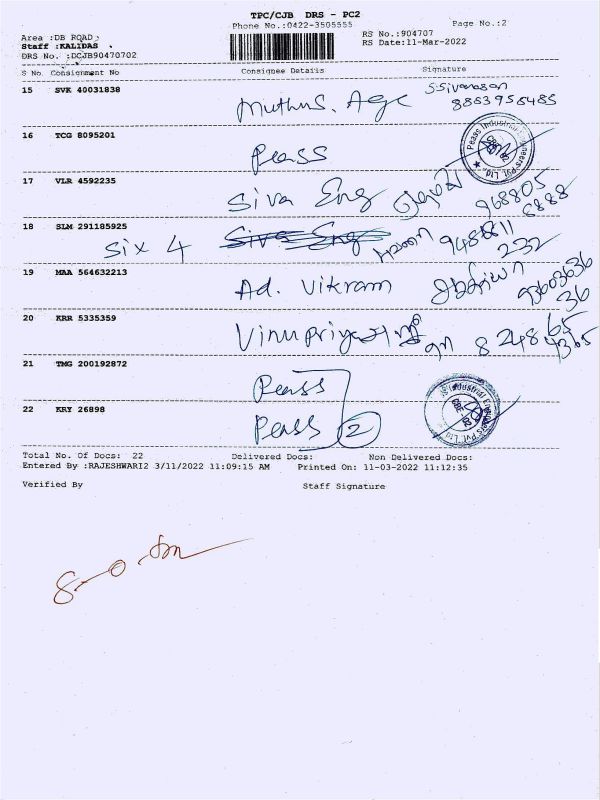 TPC/CJB DRS - PC2
Phone No.:0422-3505555
Page No.:2
Area :DB ROAD
Staff :KALIDAS
DRS No. :DCJB90470702
RS No.:904707
RS Date:11-Mar-2022
S No. Consignment No Consignee Details Signature
15 SVK 40031838 Muthus. Age S.Sivanasan
8883958485
16 TCG 8095201 Peass
Peass Industrial Engineers Pvt. Ltd.,
17 VLR 4592235 Siva Eng 968805
8888
18 SLM 291185925 Siva Eng
Six 4 9488811
232
19 MAA 564632213 Ad. Vikram 93603636
36
20 KRR 5335359 Vinupriya 824865
4365
21 TMG 200192872 Peass
22 KRY 26898 Peass 2
Industrial Engineers Pvt. Ltd.,
Total No. Of Docs: 22 Delivered Docs: Non Delivered Docs:
Entered By :RAJESHWARI2 3/11/2022 11:09:15 AM Printed On: 11-03-2022 11:12:35
Verified By Staff Signature